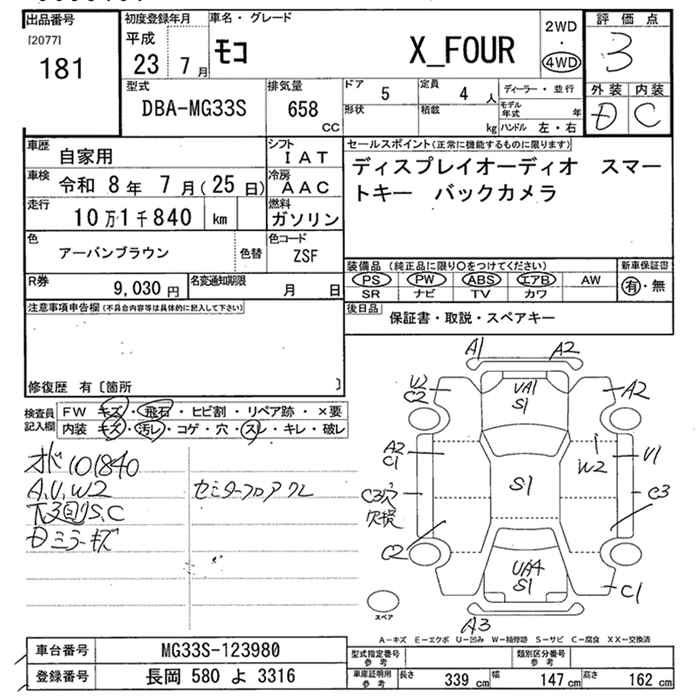 出品番号
[2077]
181
初度登録年月
平成
23 7月
車名・グレード
モコ X_FOUR
2WD
・
4WD
評価点
3
外装 内装
D C
型式
DBA-MG33S
排気量
658
CC
ドア 5
定員 4 人
ディーラー・並行
形状
積載 kg
モデル年式 年
ハンドル 左・右
車歴 自家用
シフト IAT
車検 令和 8年 7月(25日)
冷房 AAC
走行 10万1千840 km
燃料 ガソリン
色 アーバンブラウン 色替
色コード ZSF
R券 9,030円
名変通知期限 月 日
セールスポイント(正常に機能するものに限ります)
ディスプレイオーディオ スマー
トキー バックカメラ
装備品 (純正品に限り○をつけてください)
PS PW ABS エアB AW
SR ナビ TV カワ
新車保証書
有・無
後日品 保証書・取説・スペアキー
注意事項申告欄(不具合内容等は具体的に記入して下さい)
修復歴 有〔箇所 〕
検査員記入欄
FW キズ・飛石・ヒビ割・リペア跡・×要
内装 キズ・汚レ・コゲ・穴・スレ・キレ・破レ
オド101840
A,U,W2
下3回りS,C
Dミラーキズ
センターフロアクレ
A1 A2
U2
C2
UA1
S1
A2
A2
C1
W2
U1
S1
C3穴
欠損
C3
C2
UA4
S1
C1
A3
スペア
A-キズ E-エクボ U-凹み W-補修跡 S-サビ C-腐食 XX-交換済
車台番号 MG33S-123980
登録番号 長岡 580 よ 3316
型式指定番号
参考
類別区分番号
参考
車庫証明用
参考
長さ 339 cm
幅 147 cm
高さ 162 cm